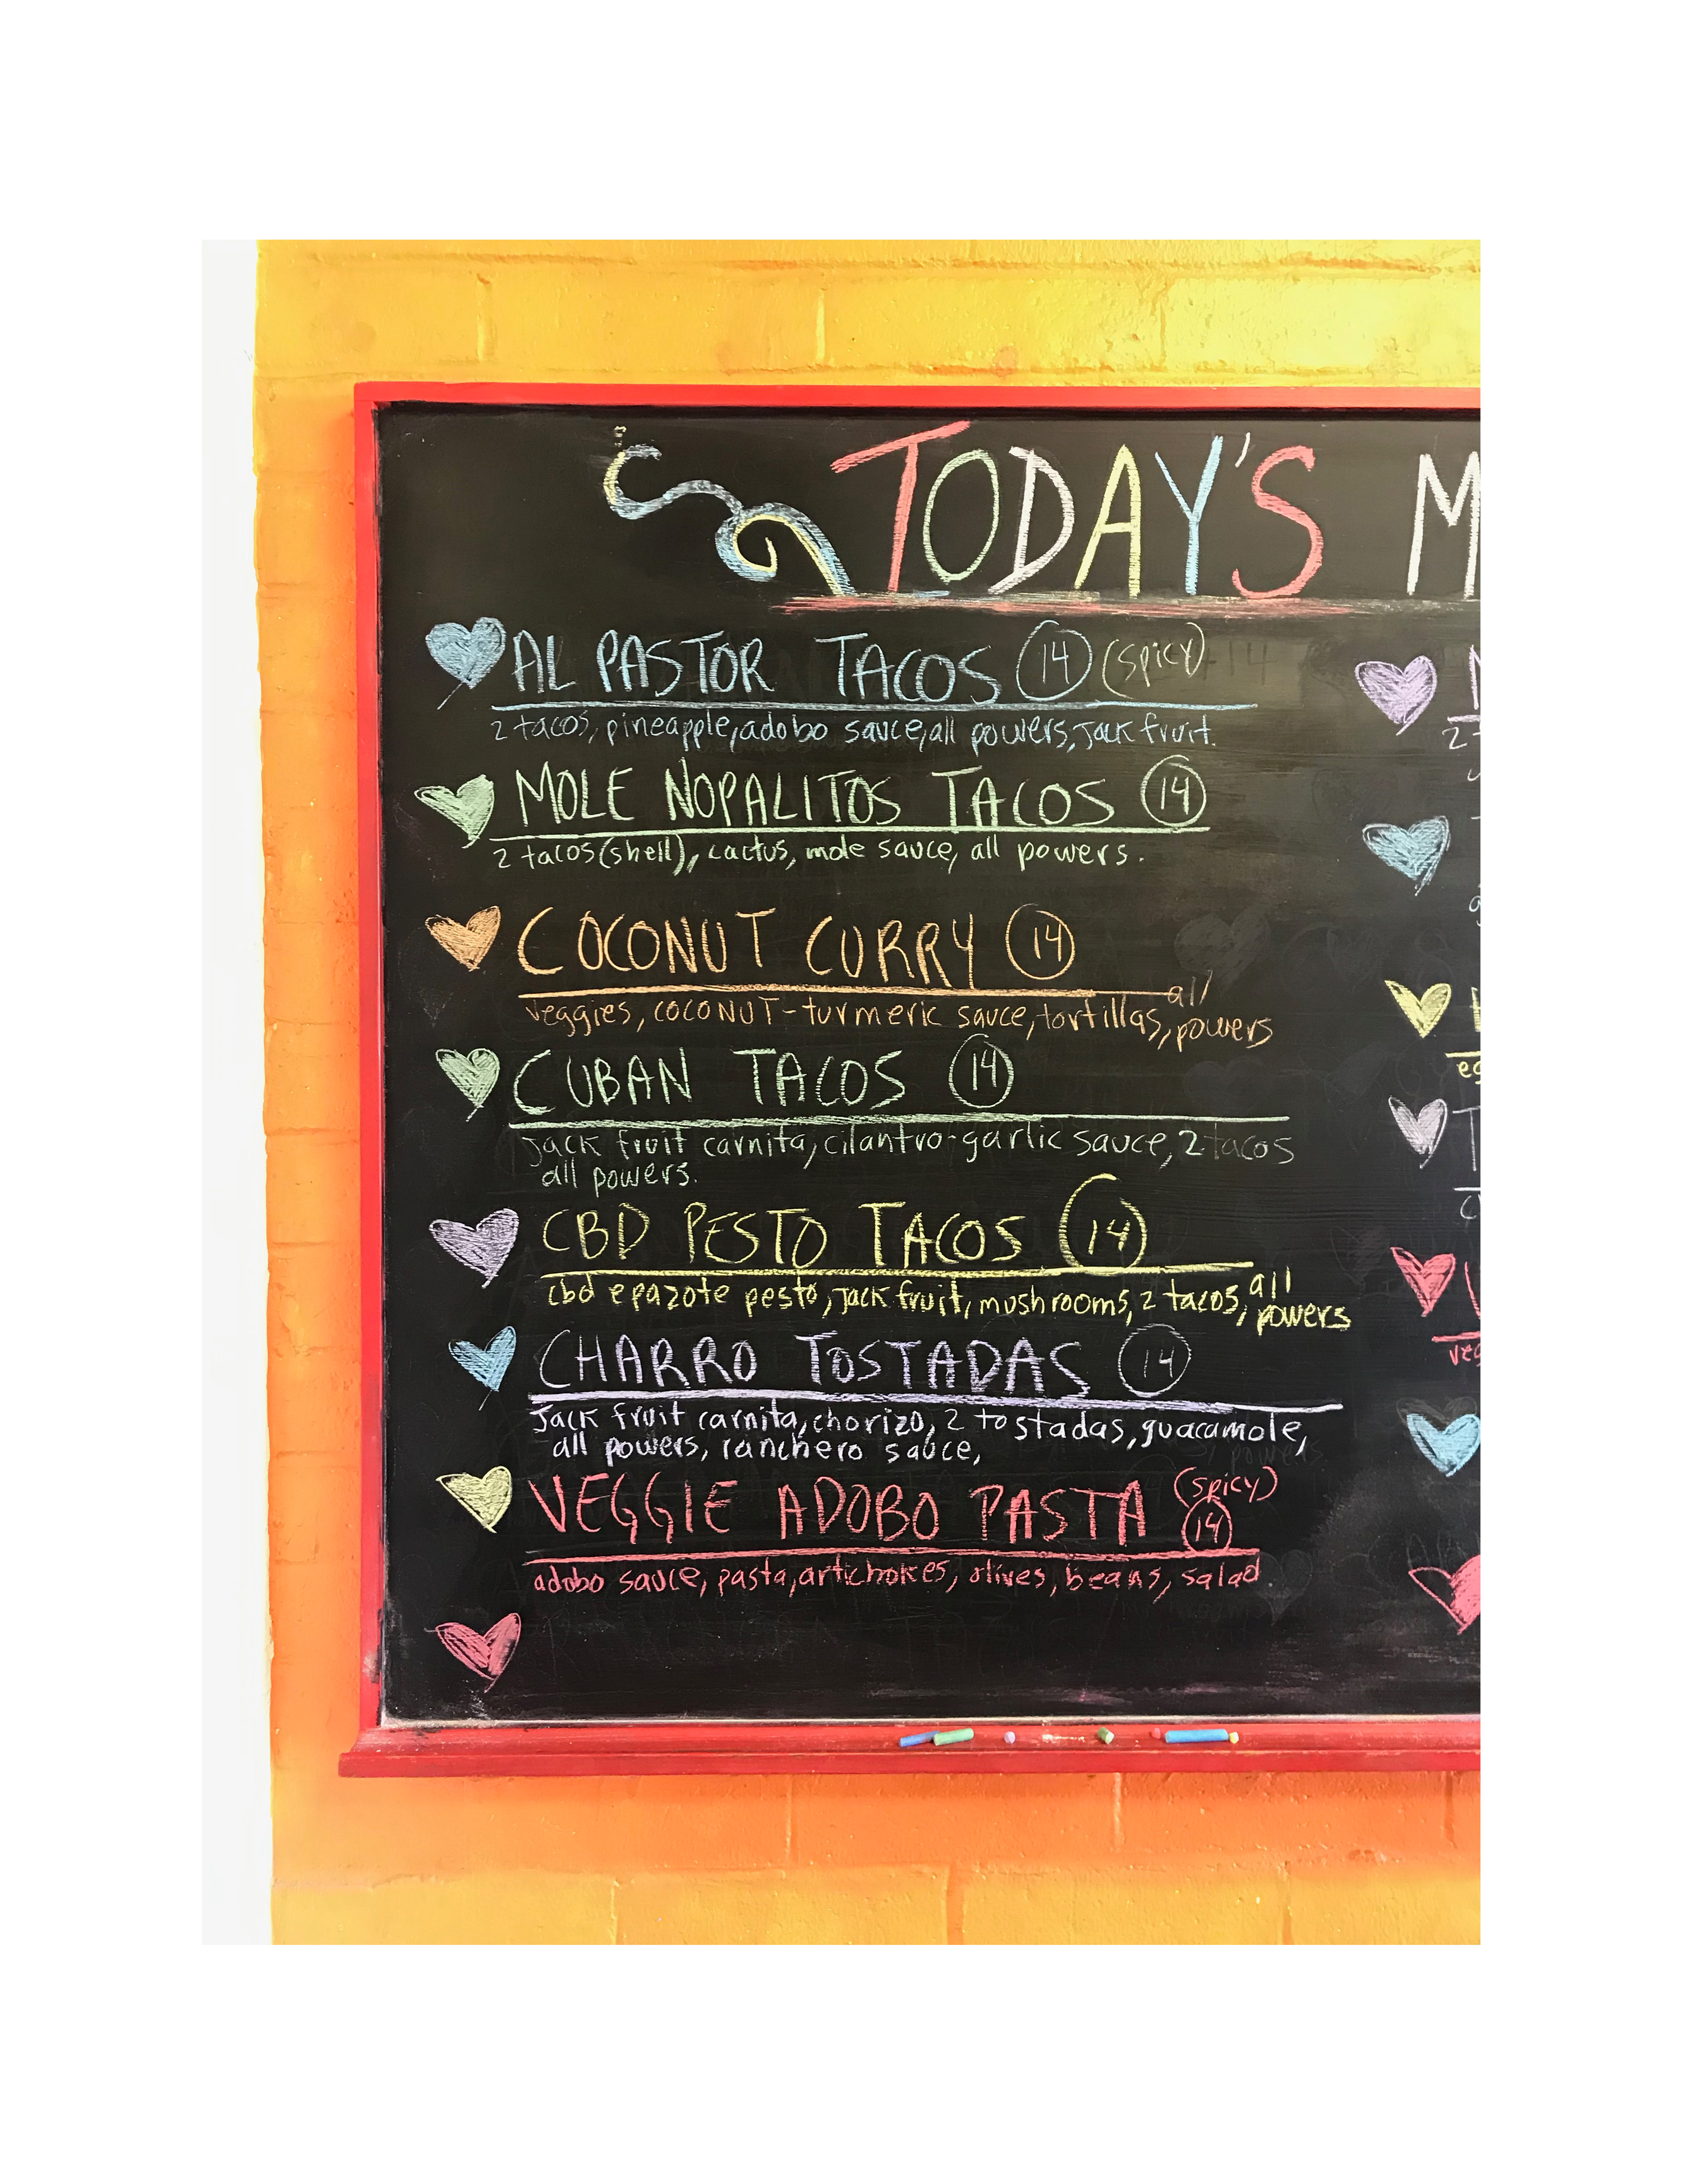 TODAY'S M
AL PASTOR TACOS 14 (spicy)
2 tacos, pineapple, adobo sauce, all powers, jack fruit.
MOLE NOPALITOS TACOS 14
2 tacos (shell), cactus, mole sauce, all powers.
COCONUT CURRY 14
veggies, COCONUT-turmeric sauce, tortillas, all powers
CUBAN TACOS 14
Jack fruit carnita, cilantro-garlic sauce, 2 tacos
all powers.
CBD PESTO TACOS 14
cbd epazote pesto, jack fruit, mushrooms, 2 tacos, all powers
CHARRO TOSTADAS 14
Jack fruit carnita, chorizo, 2 tostadas, guacamole,
all powers, ranchero sauce,
VEGGIE ADOBO PASTA (spicy) 14
adobo sauce, pasta, artichokes, olives, beans, salad